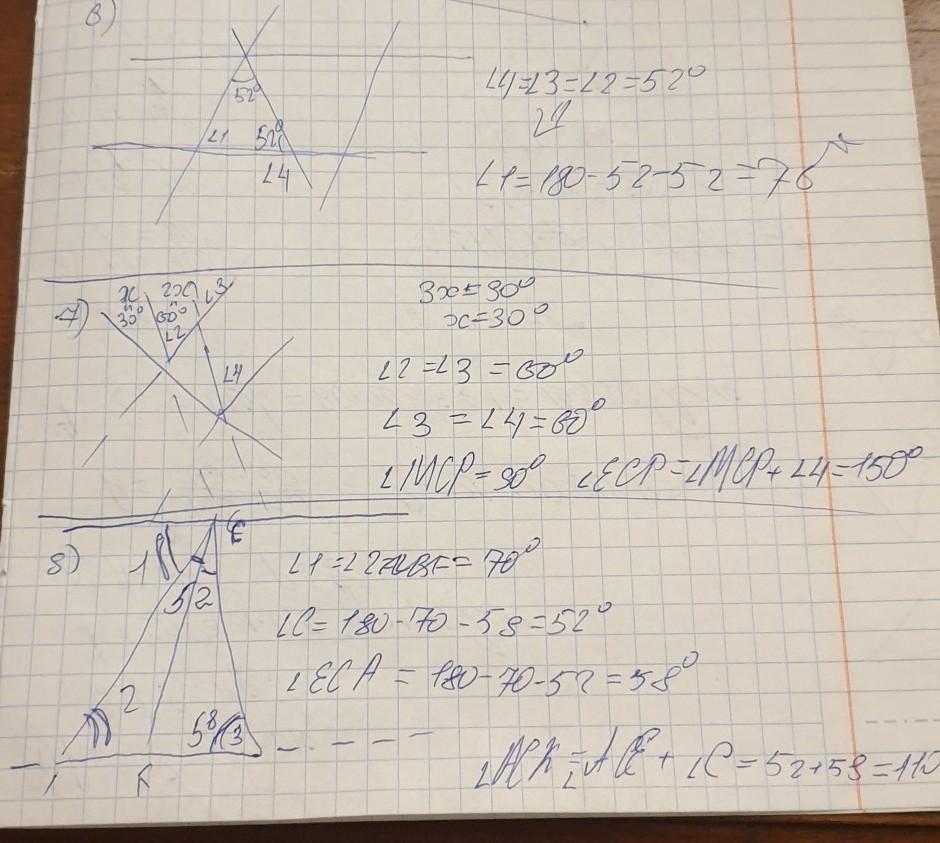 в)
52°
∠1 52°
∠4
∠4=∠3=∠2=52°
∠1=180-52-52=76
7)
x 2x ∠3
30° 60°
∠2
∠4
3x=90°
x=30°
∠2=∠3=60°
∠3=∠4=60°
∠MCP=90° ∠ECP=∠MCP+∠4=150°
8)
1
52
2
58 3
∠1=∠2=∠ABF=70°
∠C=180-70-58=52°
∠ECA=180-70-52=58°
+∠C=52+58=110